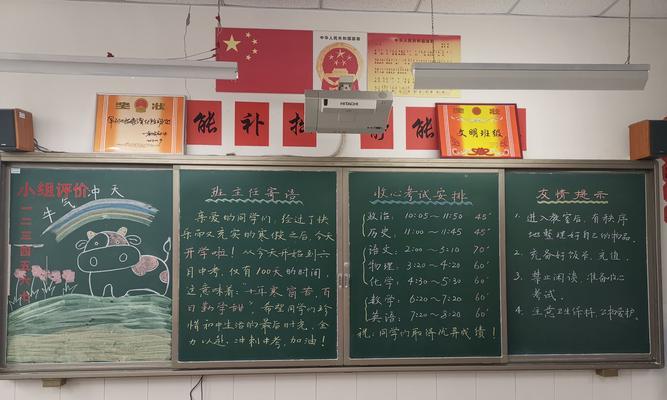 中华人民共和国国徽
HITACHI
能 补 拙
能
文明班级
小组评价
一二三四五六七
牛气冲天
班主任寄语
亲爱的同学们，经过了快
乐而又充实的寒假之后，今天
开学啦！从今天开始到六
月中考，仅有100天的时间，
这意味着：“十年寒窗苦，百
日勤学甜”，希望同学们珍
惜初中生活的最后时光，全
力以赴，冲刺中考，加油！
收心考试安排
政治: 10:05～11:50 45″
历史: 11:00～11:45 45″
语文: 2:00～5:10 70″
物理: 3:20～4:20 60″
化学: 4:30～5:30 60″
数学: 6:20～7:20 60″
英语: 7:20～8:20 60″
祝:同学们取得优异成绩！
友情提示
1. 进入教室后,有秩序
地整理好自己的物品.
2. 充备好饭卡,充值.
3. 禁止阅读,准备收心
考试.
4. 注意卫生保持,